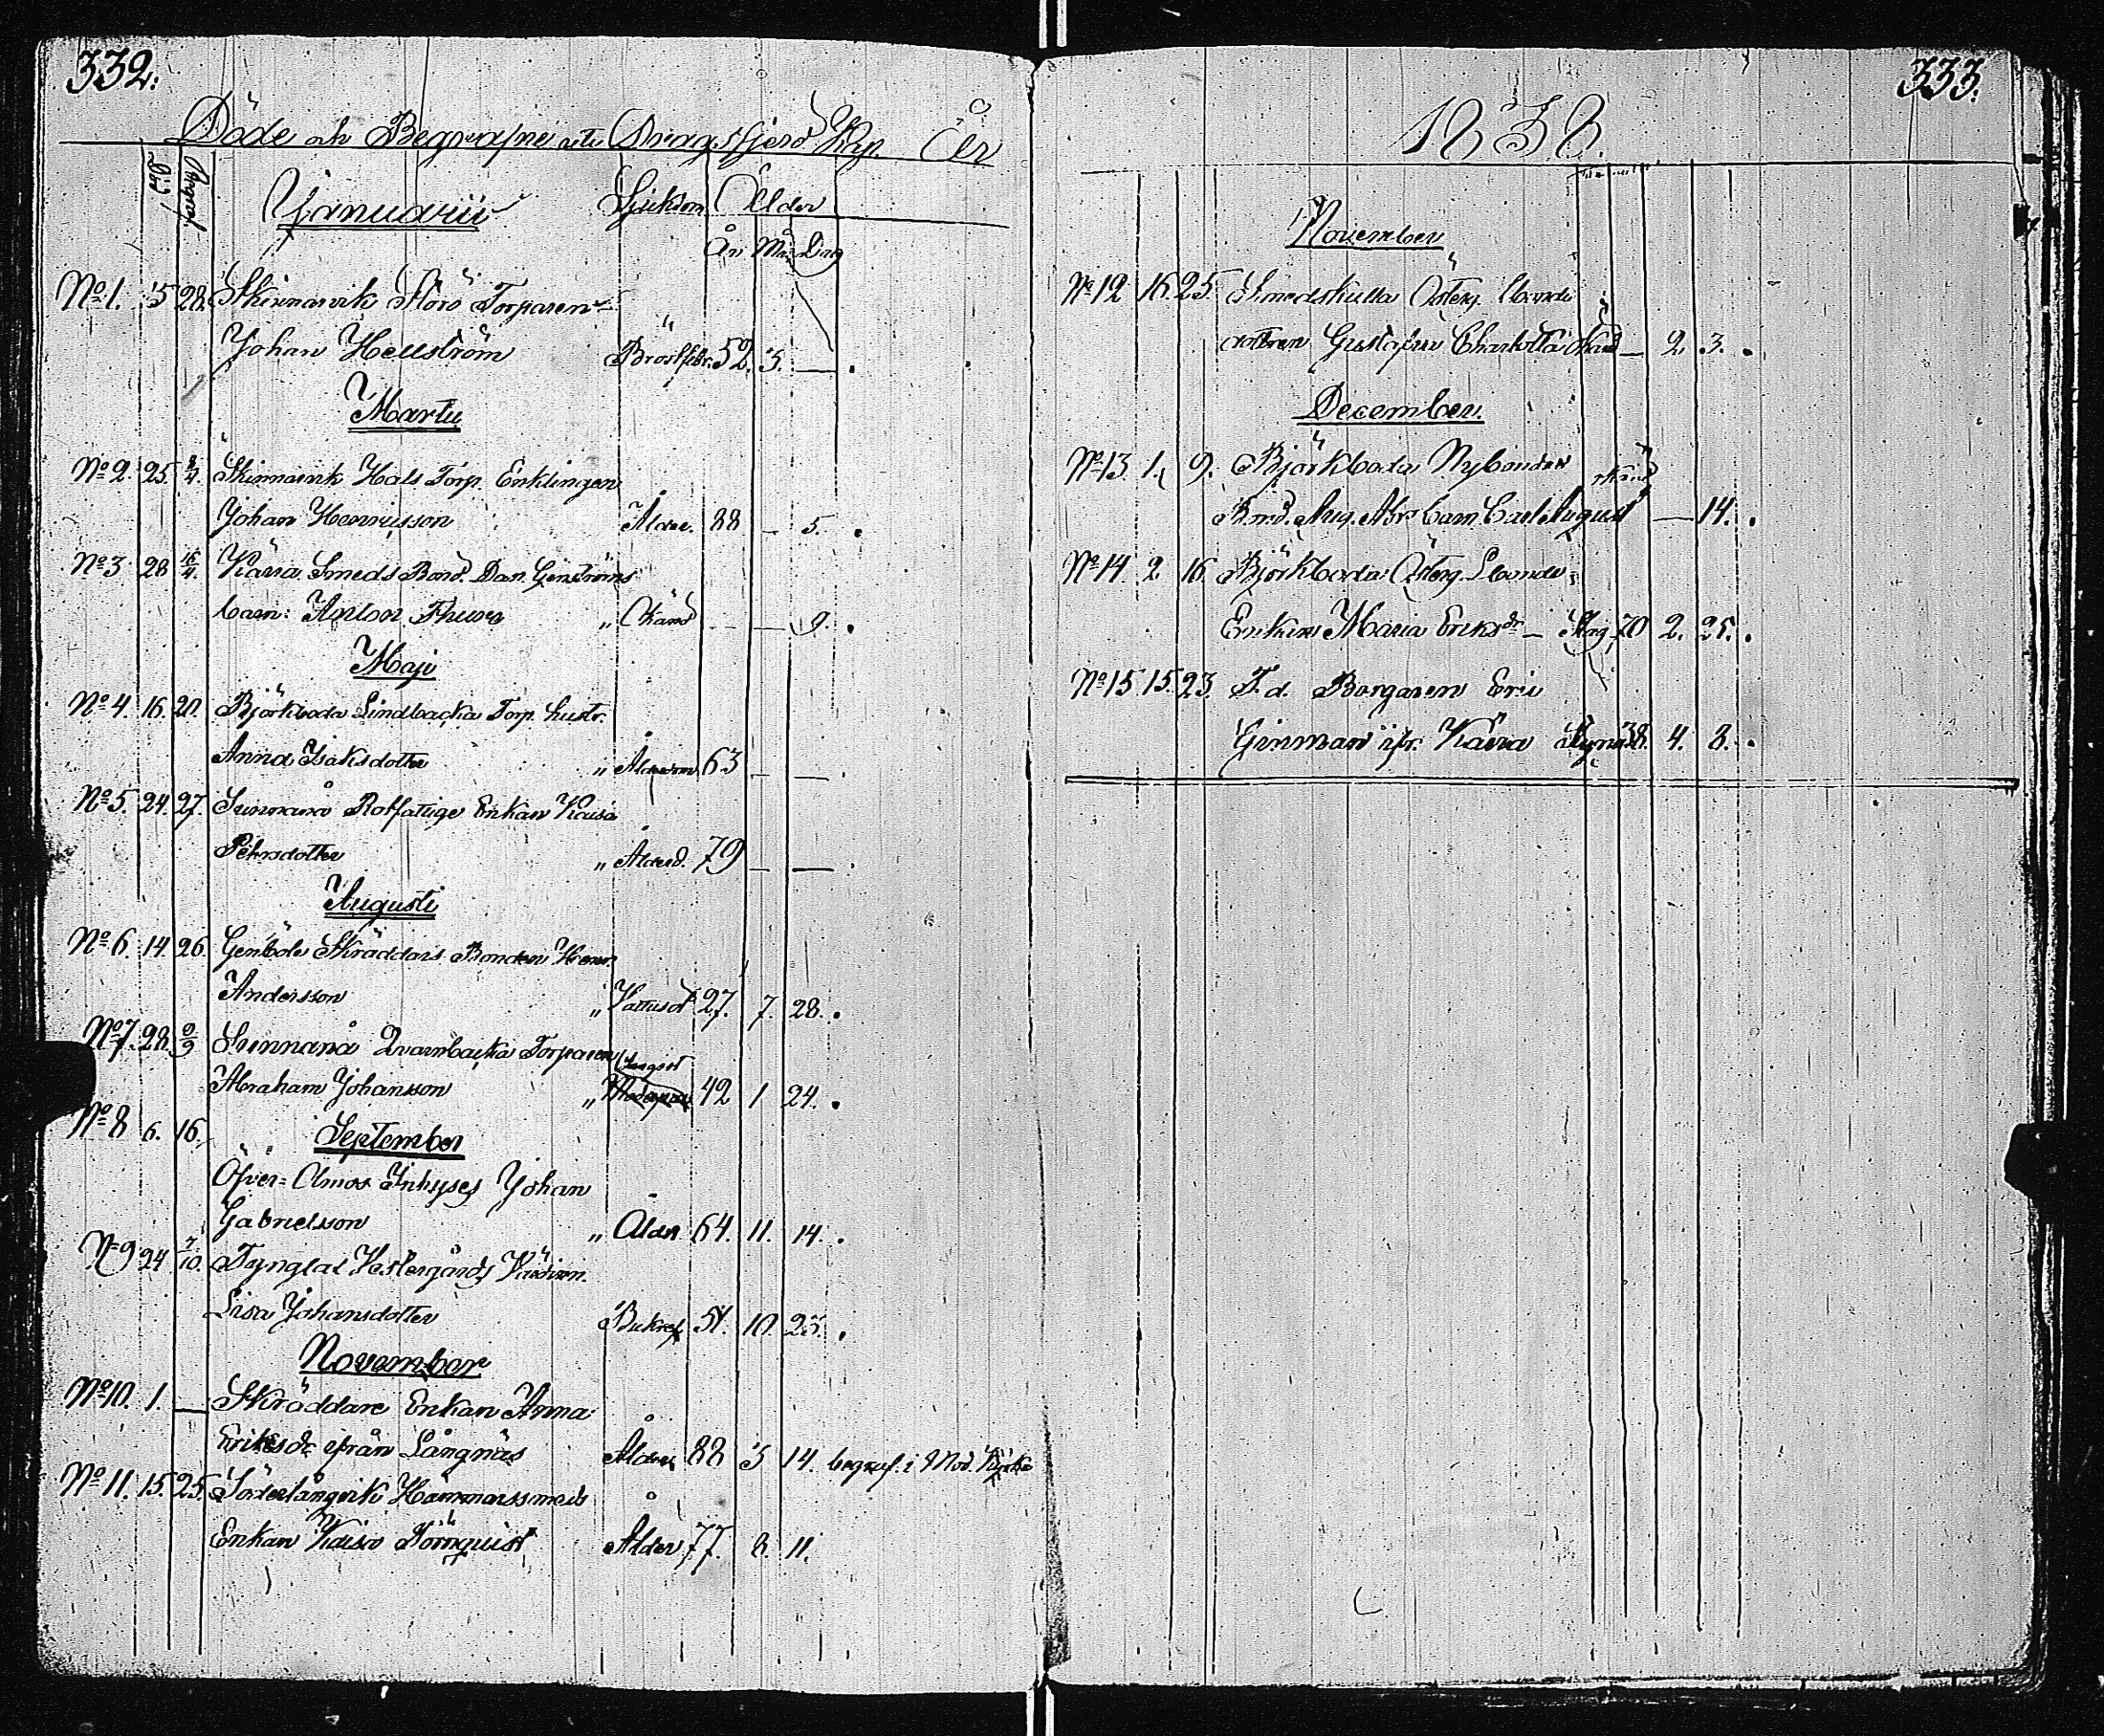 332.
Döde och Begrafne uti Dragsfjerd Kap. År
Död Begraf. Januarii Sjukdom Ålder
År Mån. Dag
No 1. 5 28. Skinnarvik Störö Torparen
Johan Hellström Bröstfeb. 52. 5. — .
Martii
No 2. 25. 8/4. Skinnarvik Hals Torp. Enklingen
Johan Henriksson Ålder. 88 — 5. .
No 3 28 16/4. Kärra Smeds Bond. Dan. Genströms
barn: Anton Thure " Okänd — — 9. .
Maji
No 4. 16. 20. Björkboda Lindbacka Torp. hustr.
Anna Isaksdotter " Ålderdom 63 — —
No 5. 24. 27. Sunnanå Rotfattige Enkan Kaisa
Pehrsdotter " Ålderd. 79 — — .
Augusti
No 6. 14. 26. Genböle Skräddars Bonden Henr.
Andersson " Vattusot 27. 7. 28. .
No 7. 28. 9/9 Sunnanå Qvarnbacka Torparen
Abraham Johansson " 42 1 24. .
No 8 6. 16. September
Öfver-Ölmos Inhyses Johan
Gabrielsson " Ålder 64. 11. 14. .
No 9 24 7/10. Tynglax Vestergårds Värdinn.
Lisa Johansdotter Bukref 51. 10. 25. .
November
No 10. 1. — Skräddare Enkan Anna
Eriksdr ifrån Långnäs Ålder 88 5 14. begraf. i Mod. Kyrka
No 11. 15. 25. Söderlångvik Hammarssmeds
Enkan Kaisa Törnquist Ålder 77. 8. 11.
333.
1838.
November
No 12 16. 25 Smedskulla Österg. Bonde
dottren Gustafva Charlotta okänd — 2. 3. .
December.
No 13 1. 9. Björkboda Nybondas okänd
Bond. Aug. Abr. barn Carl August — 14. .
No 14. 2 16. Björkboda Österg. Bonde-
Enkan Maria Eriksdr — Slag 70 2. 25. .
No 15 15. 23. F. d. Borgaren Eric
Ginman ifr. Kärra 38. 4. 8. .